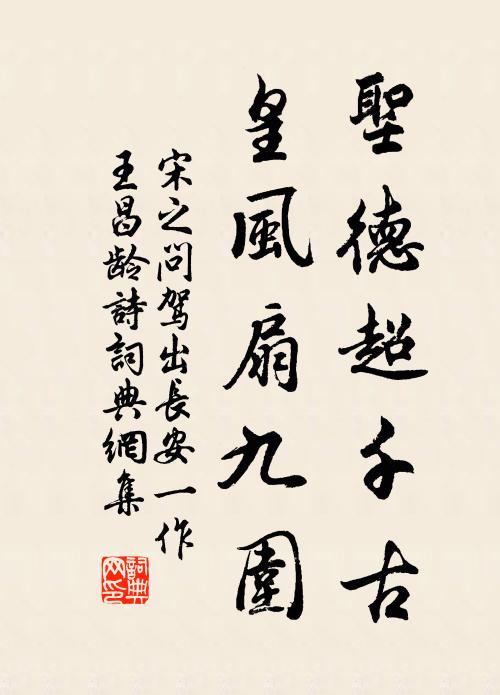 聖德超千古
皇風扇九圍
宋之问駕出長安一作
王昌龄詩詞典網集
詞典
网印